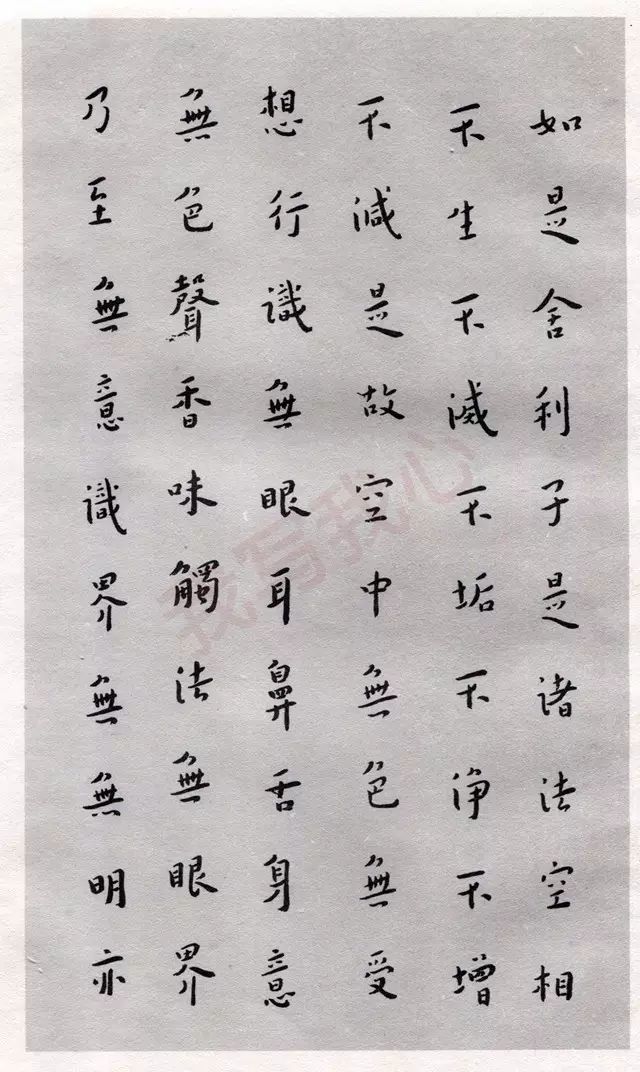 如是舍利子是诸法空相
不生不滅不垢不浄不增
不減是故空中無色無受
想行識無眼耳鼻舌身意
無色聲香味觸法無眼界
乃至無意識界無無明亦
我写我心